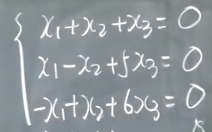 x₁+x₂+x₃=0
x₁-x₂+5x₃=0
-x₁+x₂+6x₃=0